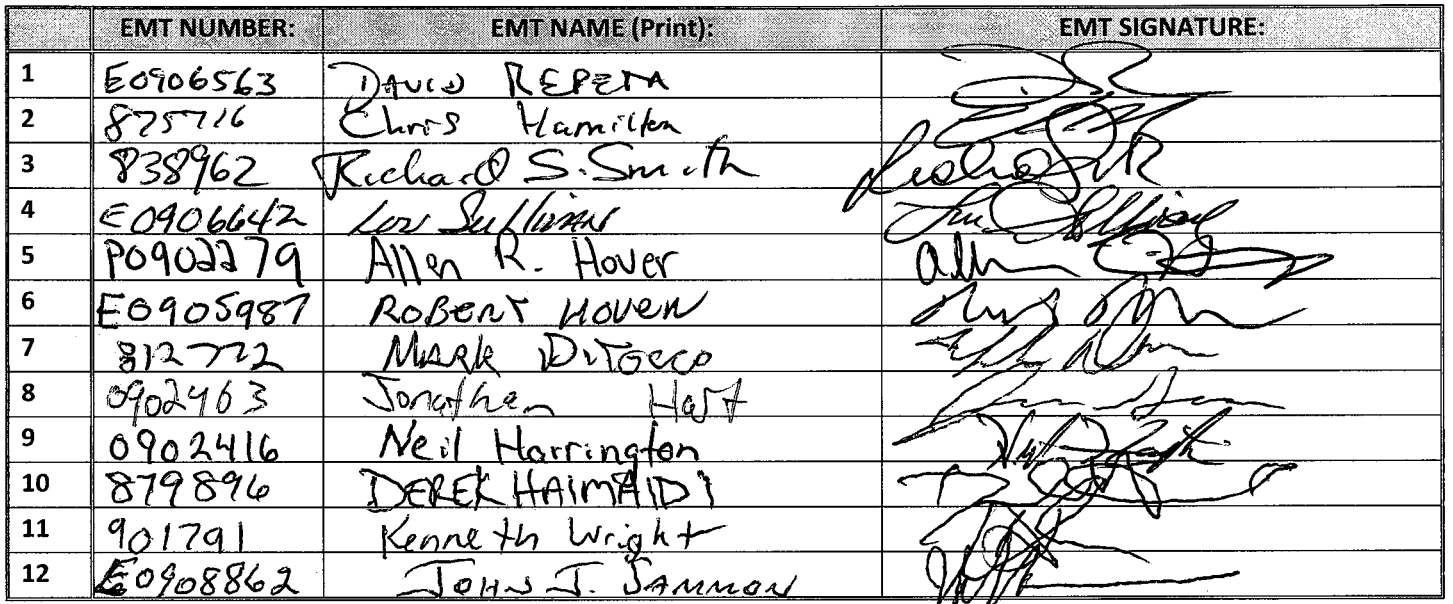 EMT NUMBER: EMT NAME (Print): EMT SIGNATURE:
1 E0906563 DAVID REPETA
2 875716 Chris Hamilton
3 838962 Richard S. Smith
4 E0906642 Lou Sullivan
5 P0902279 Allen R. Hover
6 E0905987 ROBERT HOVEN
7 812772 MARK DiTocco
8 0902463 Jonathan Hart
9 0902416 Neil Harrington
10 879896 DEREK HAIMAIDI
11 901791 Kenneth Wright
12 E0908862 JOHN J. SAMMON